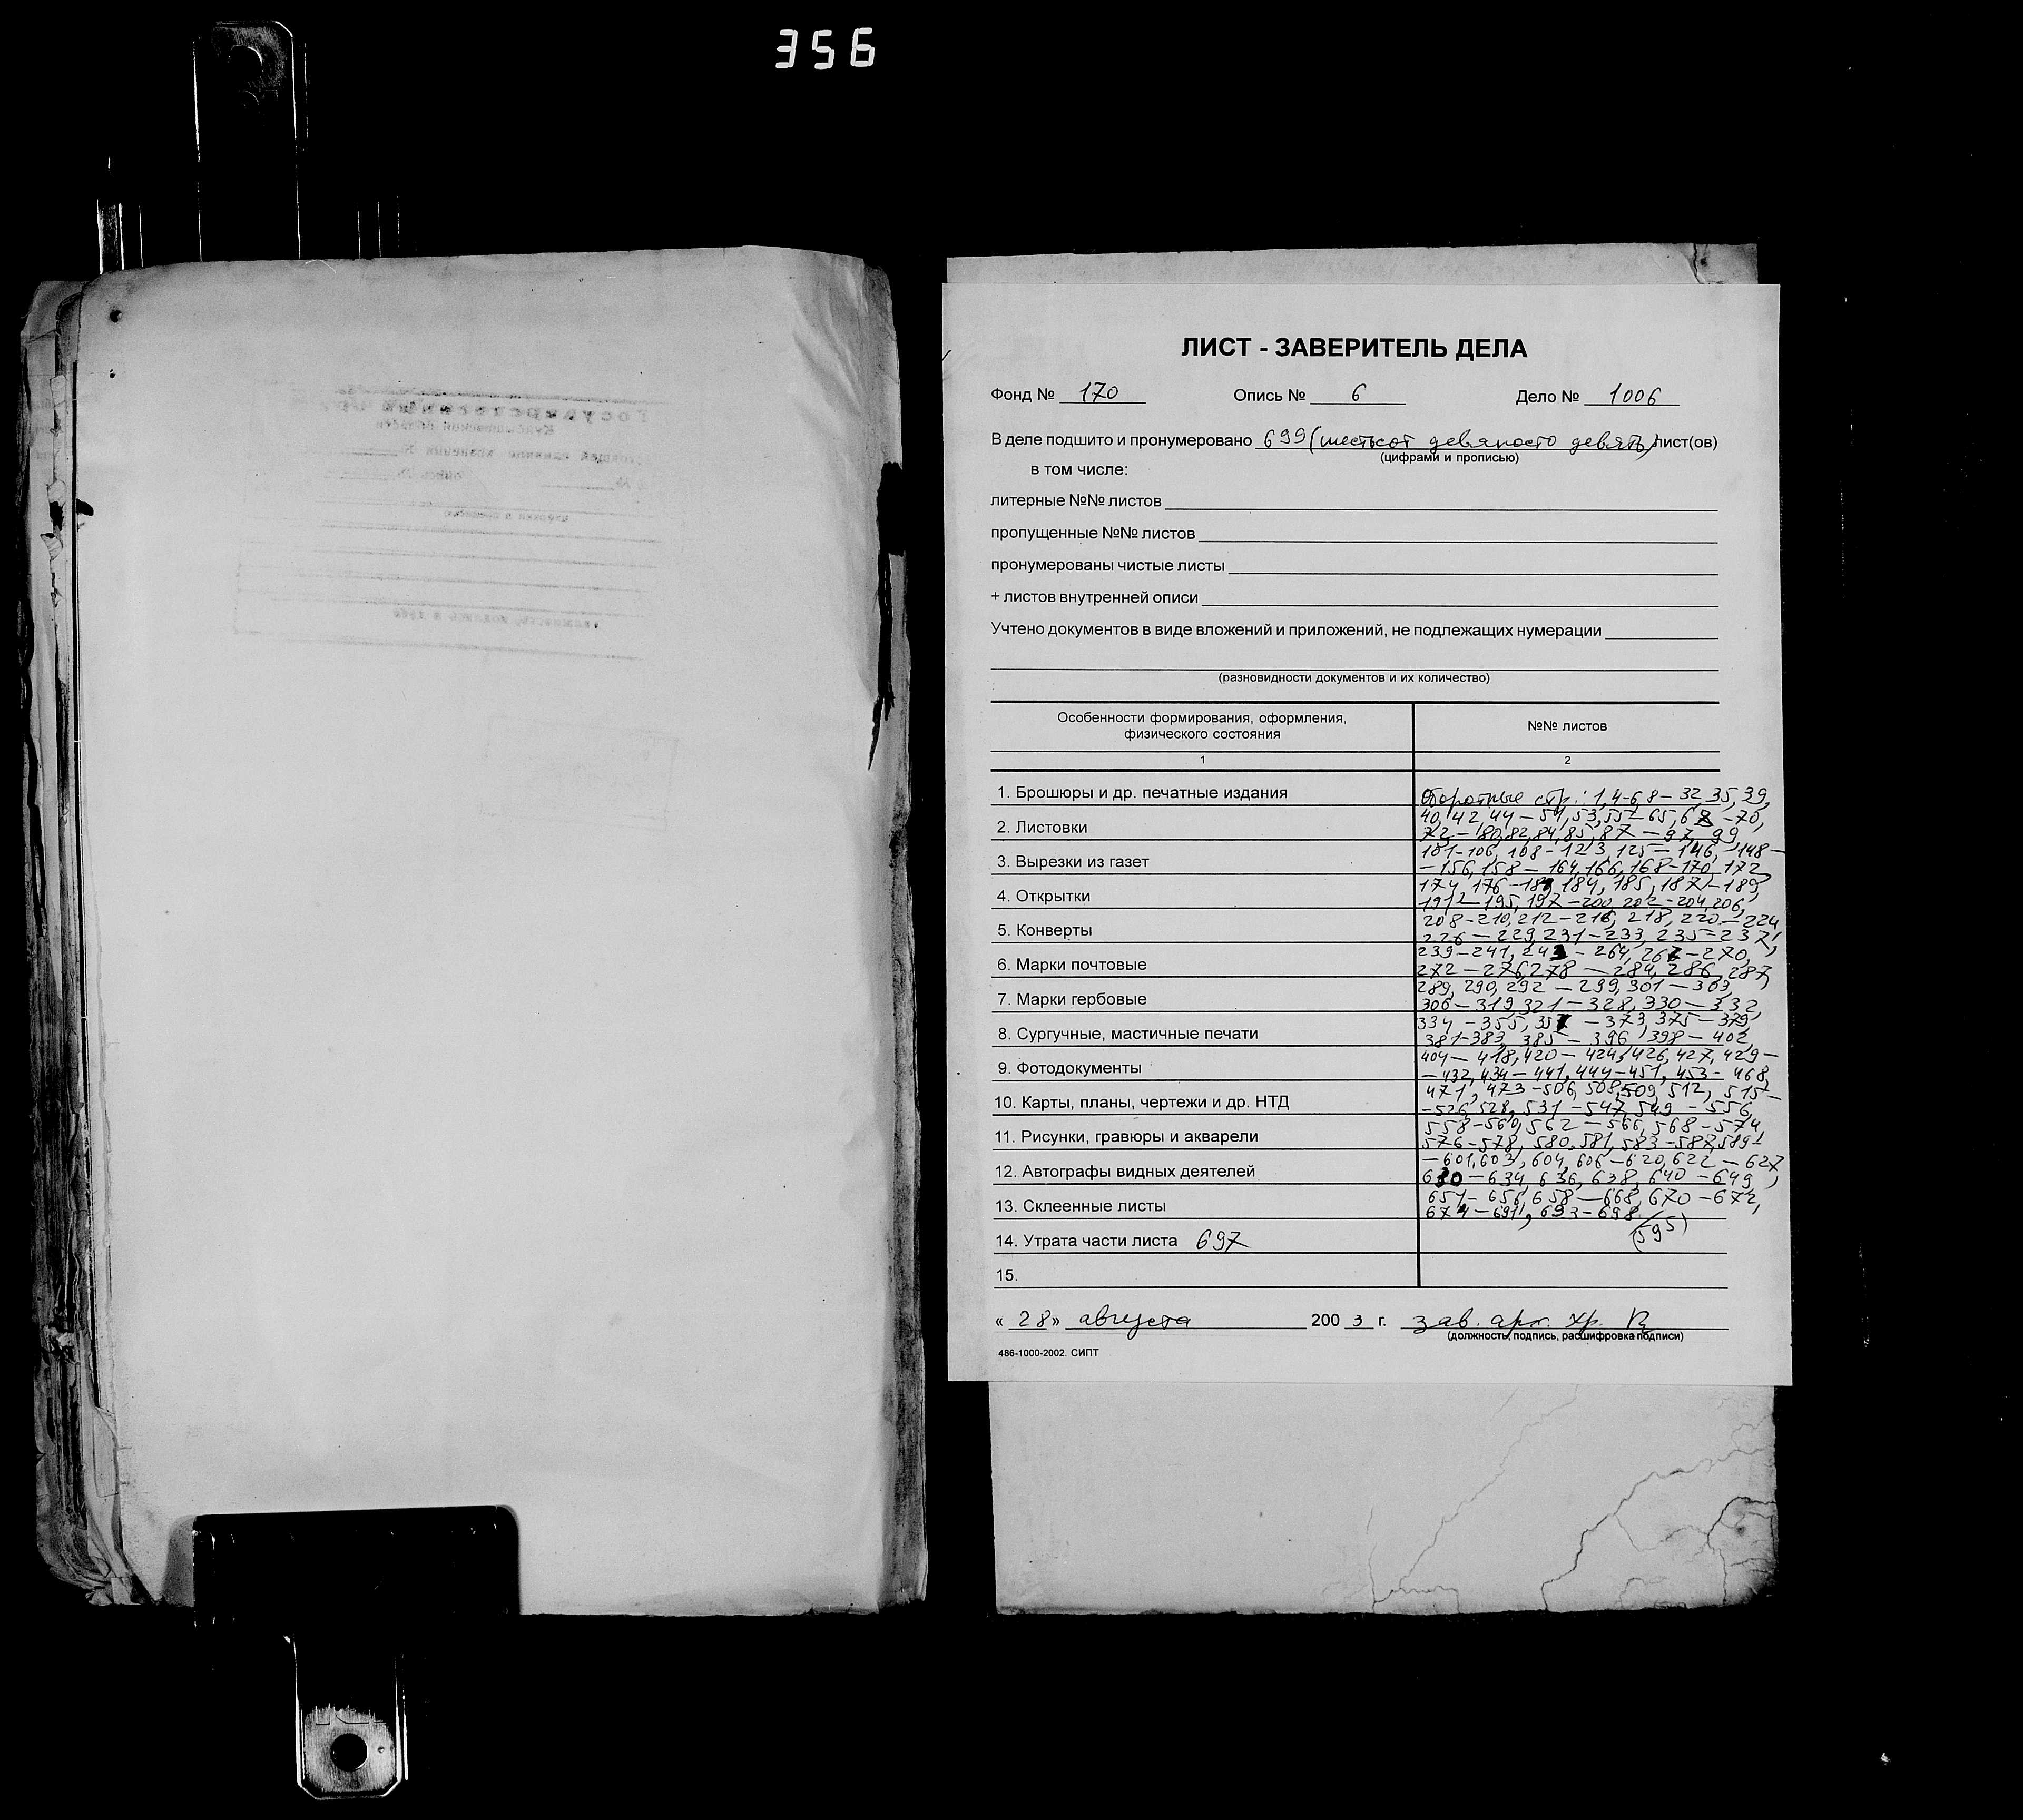 356
Государственный
Куйбышевской области
ЛИСТ - ЗАВЕРИТЕЛЬ ДЕЛА
Фонд № 170 Опись № 6 Дело № 1006
В деле подшито и пронумеровано 699 (шестьсот девяносто девять) лист(ов)
(цифрами и прописью)
в том числе:
литерные №№ листов
пропущенные №№ листов
пронумерованы чистые листы
+ листов внутренней описи
Учтено документов в виде вложений и приложений, не подлежащих нумерации
(разновидности документов и их количество)
Особенности формирования, оформления, физического состояния
№№ листов
1
2
1. Брошюры и др. печатные издания
2. Листовки
3. Вырезки из газет
4. Открытки
5. Конверты
6. Марки почтовые
7. Марки гербовые
8. Сургучные, мастичные печати
9. Фотодокументы
10. Карты, планы, чертежи и др. НТД
11. Рисунки, гравюры и акварели
12. Автографы видных деятелей
13. Склеенные листы
14. Утрата части листа 697
15.
Оборотные стр.: 1, 4-6, 8-32, 35, 39,
40, 42, 44-51, 53, 55-65, 68-70,
72-80, 82, 84, 85, 87-97, 99,
101-106, 108-123, 125-146, 148-
-156, 158-164, 166, 168-170, 172,
174, 176-182, 184, 185, 187-189,
191-195, 197-200, 202-204, 206,
208-210, 212-216, 218, 220-224,
226-229, 231-233, 235-237,
239-241, 243-264, 267-270,
272-276, 278-284, 286, 287,
289, 290, 292-299, 301-303,
306-319, 321-328, 330-332,
334-355, 357-373, 375-379,
381-383, 385-396, 398-402,
404-418, 420-424, 426, 427, 429-
-432, 434-441, 444-451, 453-468,
471, 473-506, 508, 509, 512, 515-
-526, 528, 531-547, 549-556,
558-560, 562-566, 568-574,
576-578, 580, 581, 583-587, 589-
-601, 603, 604, 606-620, 622-627,
630-634, 636, 638, 640-649,
651-656, 658-668, 670-672,
674-691, 693-698.
(595)
« 28 » августа 2003 г. зав. арх. хр.
(должность, подпись, расшифровка подписи)
486-1000-2002. СИПТ